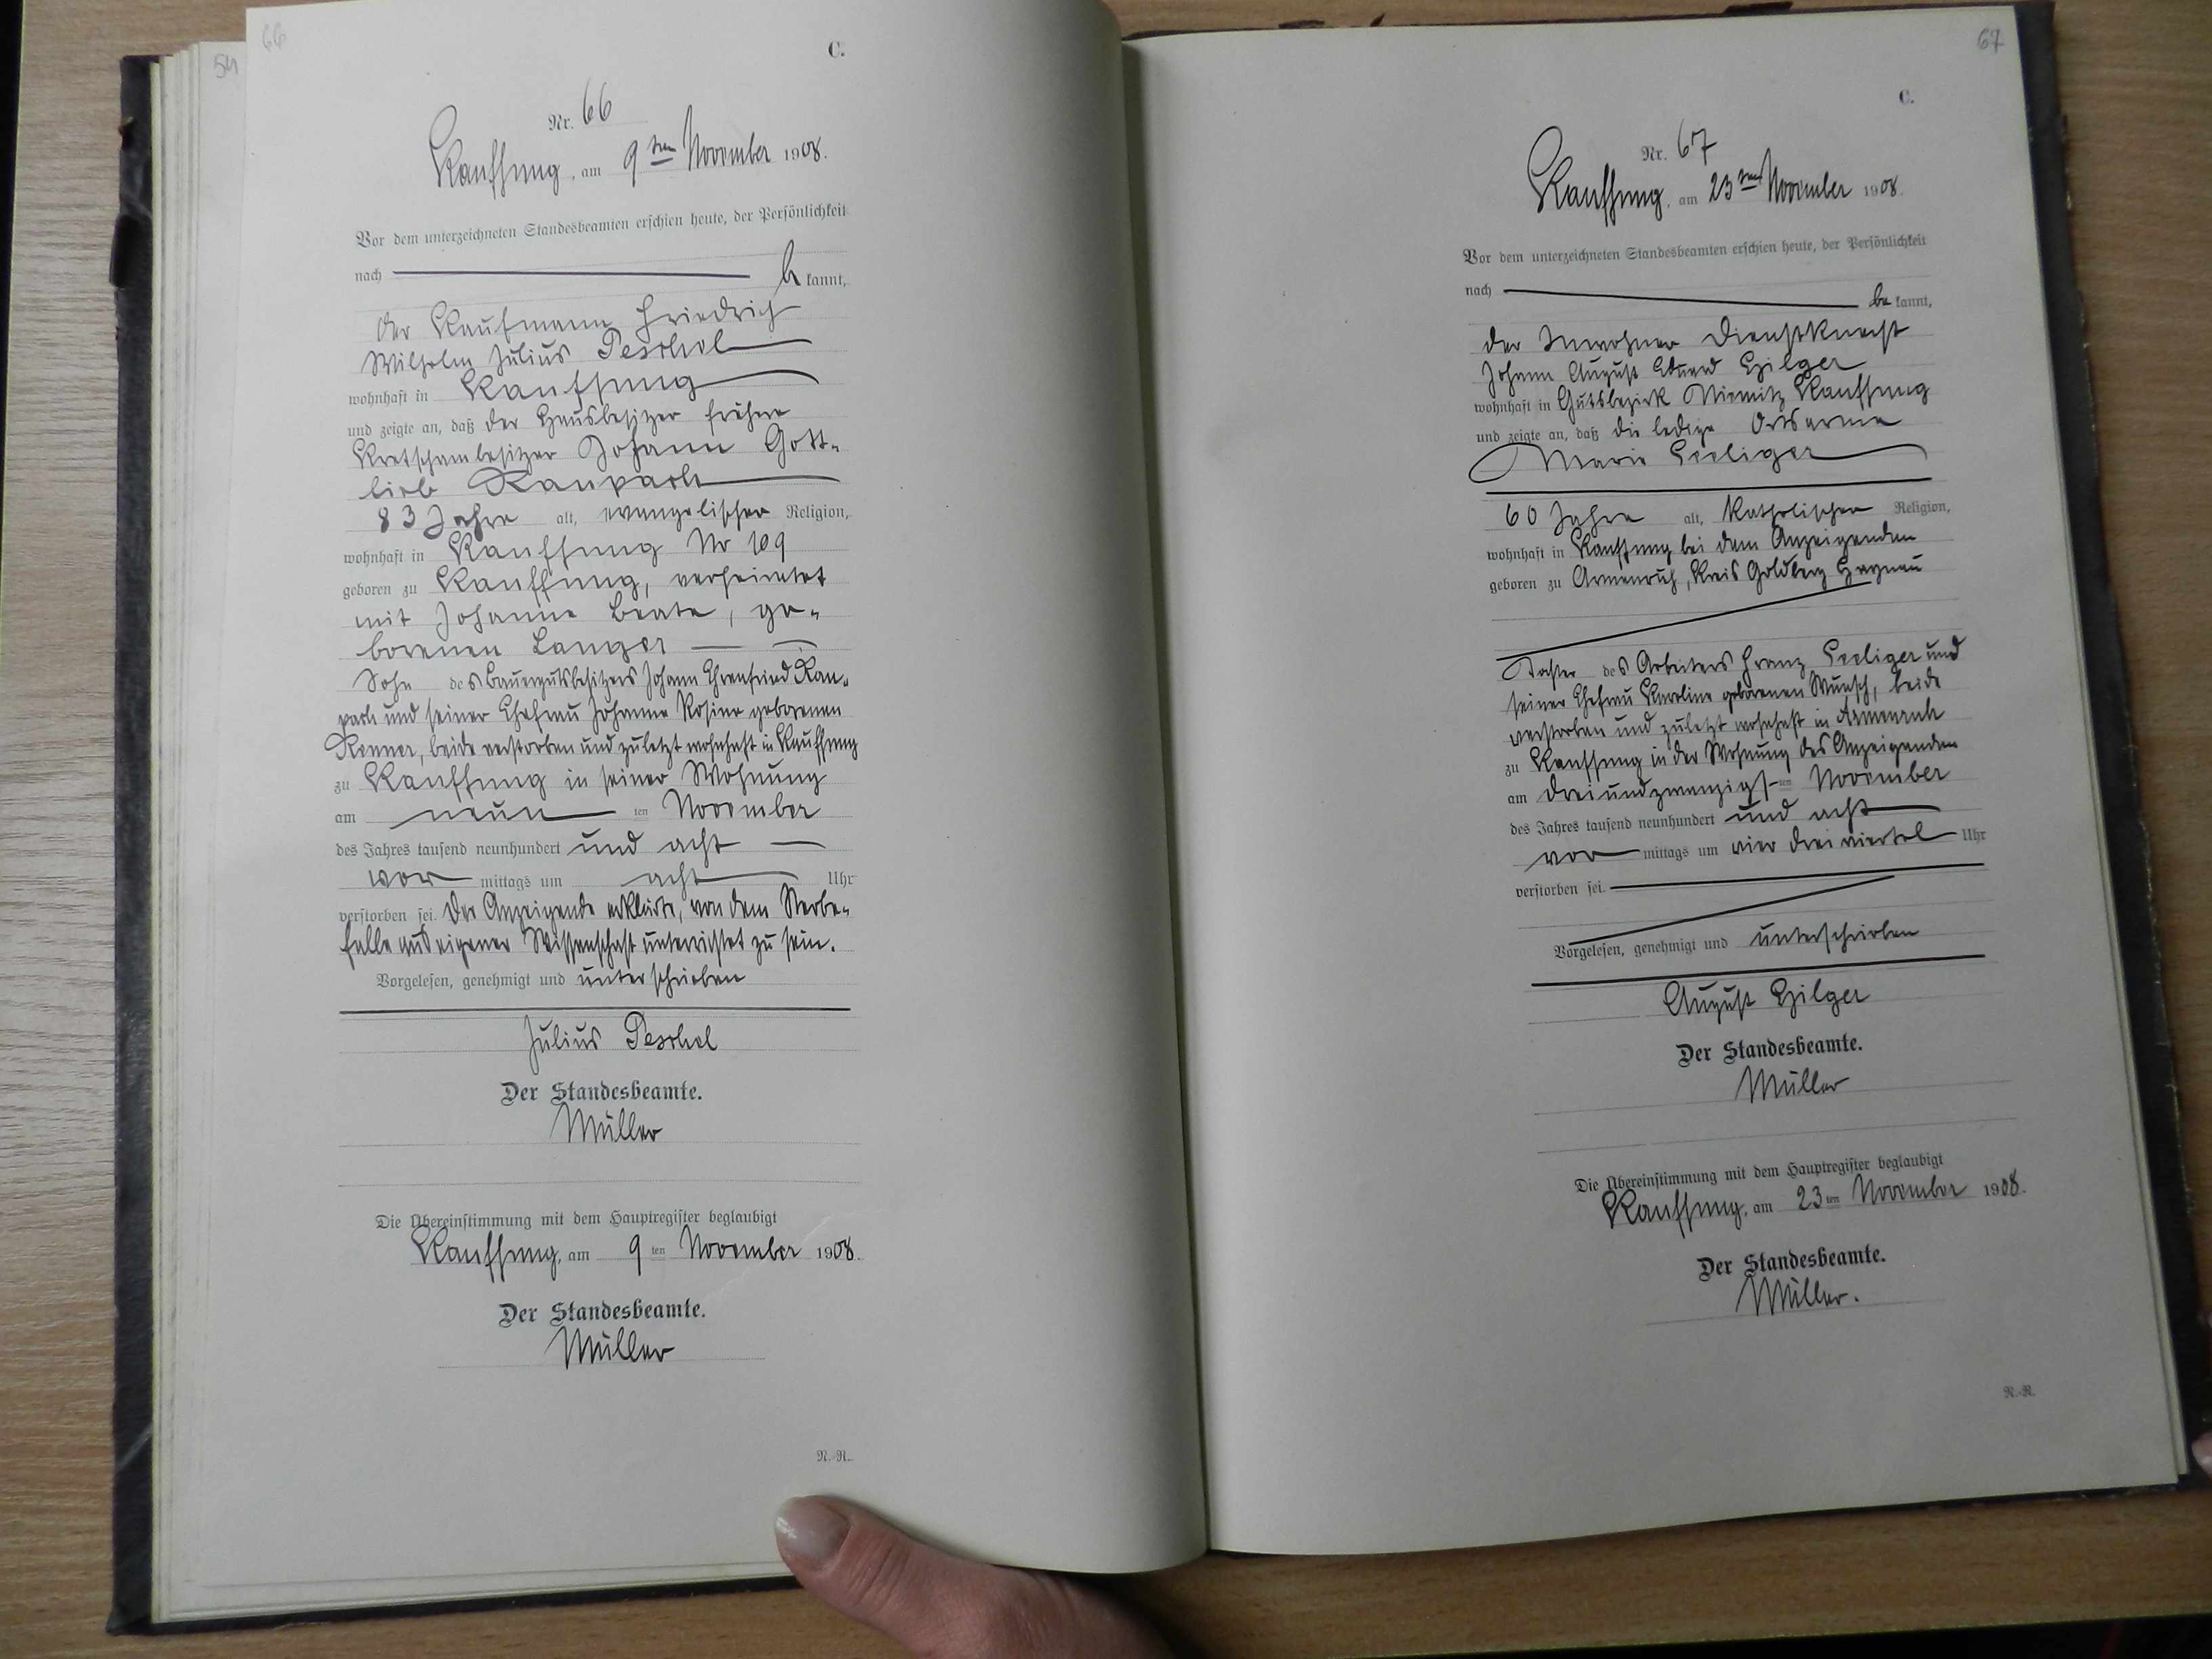 54
66
C.
Nr. 66
Kauffung, am 9ten November 1908.
Vor dem unterzeichneten Standesbeamten erschien heute, der Persönlichkeit
nach be kannt,
der Kaufmann Friedrich
Wilhelm Julius Peschel
wohnhaft in Kauffung
und zeigte an, daß der Hausbesitzer frühere
Kretschambesitzer Johann Gott-
lieb Raupach
83 Jahre alt, evangelischer Religion,
wohnhaft in Kauffung No 109
geboren zu Kauffung, verheiratet
mit Johanne Beate, ge-
borenen Langer
Sohn des Bauergutsbesitzers Johann Ehrenfried Rau-
pach und seiner Ehefrau Johanne Rosine geborenen
Renner, beide verstorben und zuletzt wohnhaft in Kauffung
zu Kauffung in seiner Wohnung
am neun ten November
des Jahres tausend neunhundert und acht
vor mittags um acht Uhr
verstorben sei. Der Anzeigende erklärte, von dem Sterbe-
falle aus eigener Wissenschaft unterrichtet zu sein.
Vorgelesen, genehmigt und unterschrieben
Julius Peschel
Der Standesbeamte.
Müller
Die Übereinstimmung mit dem Hauptregister beglaubigt
Kauffung, am 9 ten November 1908.
Der Standesbeamte.
Müller
R.-R.
67
C.
Nr. 67
Kauffung, am 23ten November 1908.
Vor dem unterzeichneten Standesbeamten erschien heute, der Persönlichkeit
nach be kannt,
der Inwohner Dienstknecht
Johann August Eduard Hilger
wohnhaft in Gutsbezirk Niemitz Kauffung
und zeigte an, daß die ledige Ortsarme
Marie Seeliger
60 Jahre alt, katholischer Religion,
wohnhaft in Kauffung bei dem Anzeigenden
geboren zu Armenruh, Kreis Goldberg Haynau
Tochter des Arbeiters Franz Seeliger und
seiner Ehefrau Karoline geborenen Wunsch, beide
verstorben und zuletzt wohnhaft in Armenruh
zu Kauffung in der Wohnung des Anzeigenden
am dreiundzwanzigs ten November
des Jahres tausend neunhundert und acht
vor mittags um vier dreiviertel Uhr
verstorben sei.
Vorgelesen, genehmigt und unterschrieben
August Hilger
Der Standesbeamte.
Müller
Die Übereinstimmung mit dem Hauptregister beglaubigt
Kauffung, am 23 ten November 1908.
Der Standesbeamte.
Müller.
R.-R.